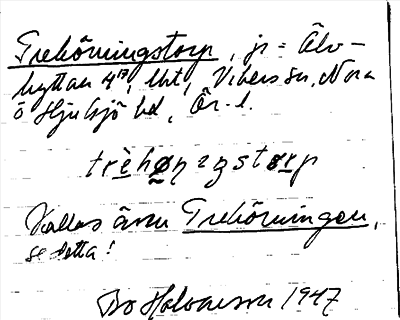 Trehörningstorp, jr = Älv-
hyttan 4¹⁷, lht, Vikers sn, Nora
o Hjulsjö bd, Ör. l.
trèhøŋɩŋstørp
Kallas även Trehörningen,
se detta!
Bo Halvarsson 1947